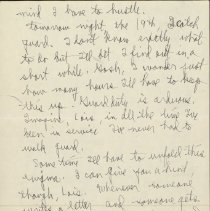 mind I have to hustle.
Tomorrow night the 19th I catch
guard. I don't know exactly what
to do but I'll bet I find out in a
short while. Gosh, I wonder just
how many hours I'll have to keep
this up. Guard duty is arduous.
Imagine, Lois, in all the time I've
been in service I've never had to
walk guard.
Some time I'll have to unfold this
enigma. I can give you a hint
though, Lois. Whenever someone
writes a letter and someone gets